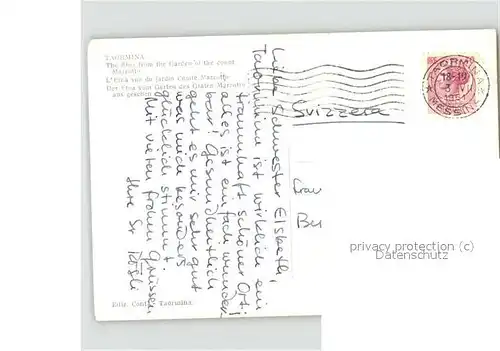 TAORMINA
The Etna from the Garden of the count
Mazzotto
L'Etna vue du Jardin Comte Mazzotto
Der Etna vom Garten des Grafen Mazzotto
aus gesehen
Liebe Schwester Elsbeth,
Taormina ist wirklich ein
traumhaft schöner Ort;
alles ist einfach wunder-
bar! Gesundheitlich
geht es mir sehr gut
was mich besonders
glücklich stimmt.
Mit vielen frohen Grüssen,
Ihre Sr.
Svizzera
Frau
TAORMINA
18-19
MESSINA
privacy protection (c)
Datenschutz
Ediz.
Taormina.